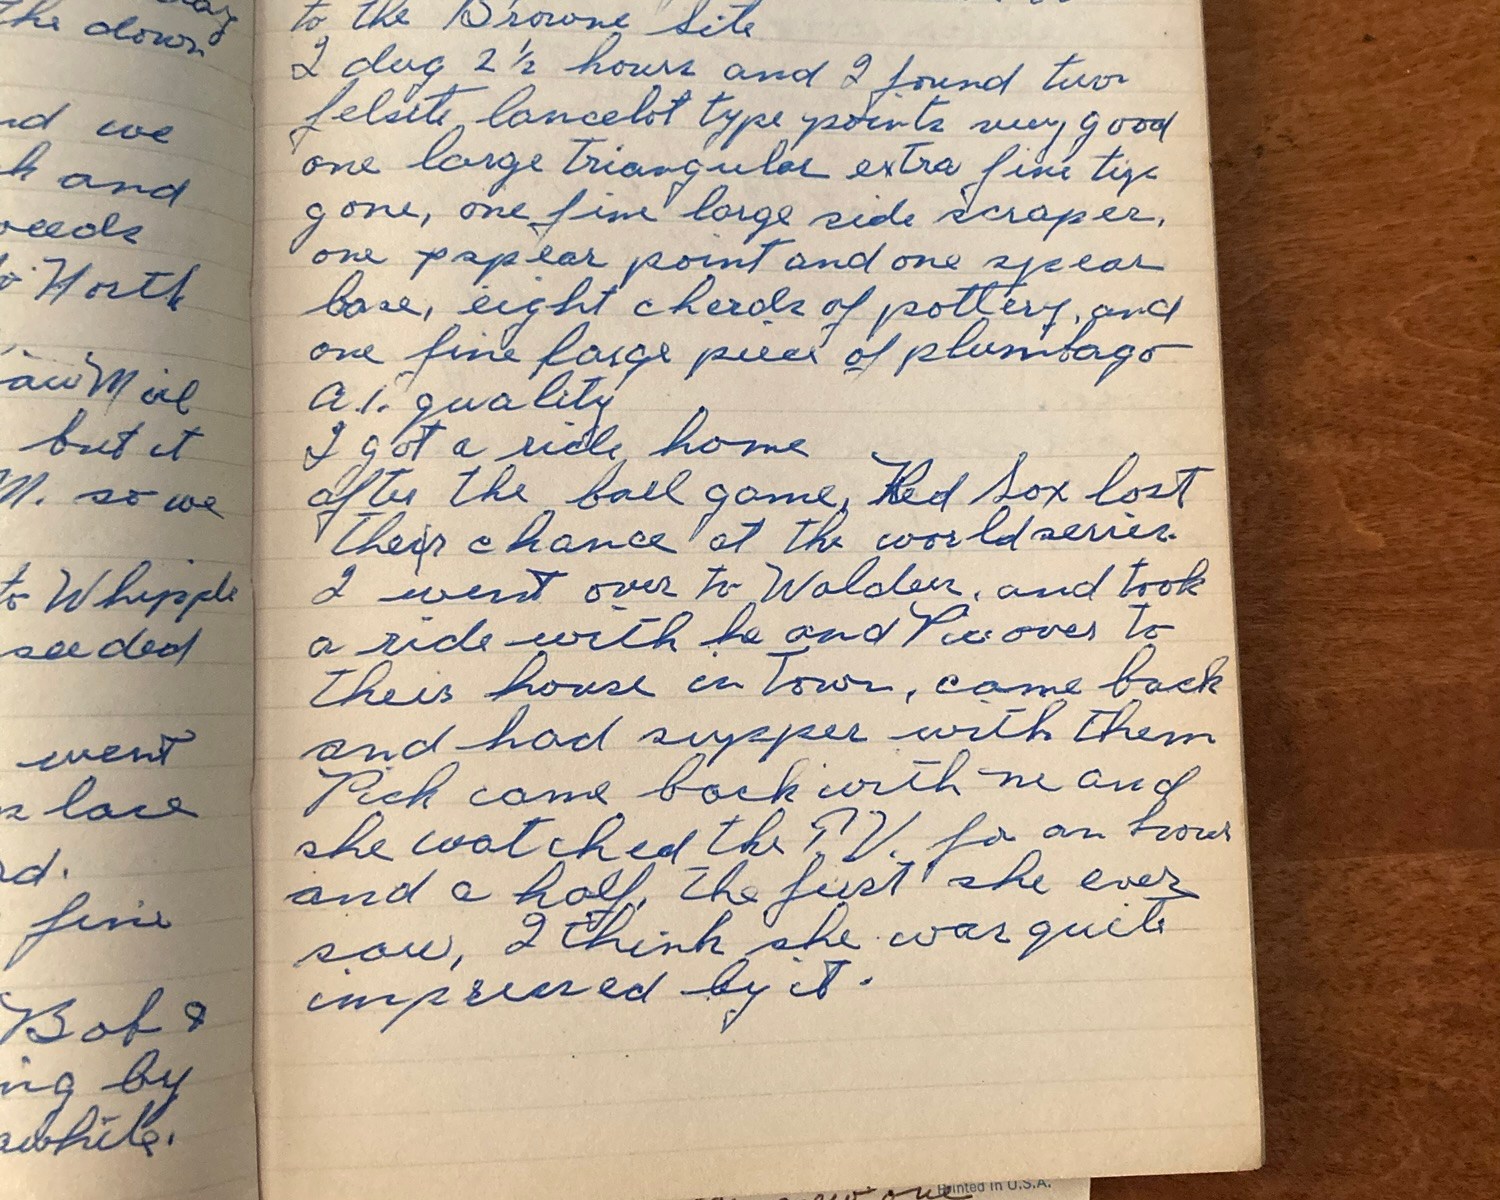 the down
to the Browne Site
I dug 2 1/2 hours and I found two
felsite lancelot type points very good
one large triangular extra fine tip
gone, one fine large side scraper,
one spear point and one spear
base, eight cherds of pottery, and
one fine large piece of plumbago
A.1. quality
I got a ride home
after the ball game, Red Sox lost
their chance at the world series.
I went over to Walden, and took
a ride with he and over to
their house in town, came back
and had supper with them
Pick came back with me and
she watched the TV. for an hour
and a half, the first she ever
saw, I think she was quite
impressed by it.
and we
and
North
but it
M. so we
to Whipple
seeded
went
lace
fine
Bob &
by
awhile.
one
Printed in U.S.A.